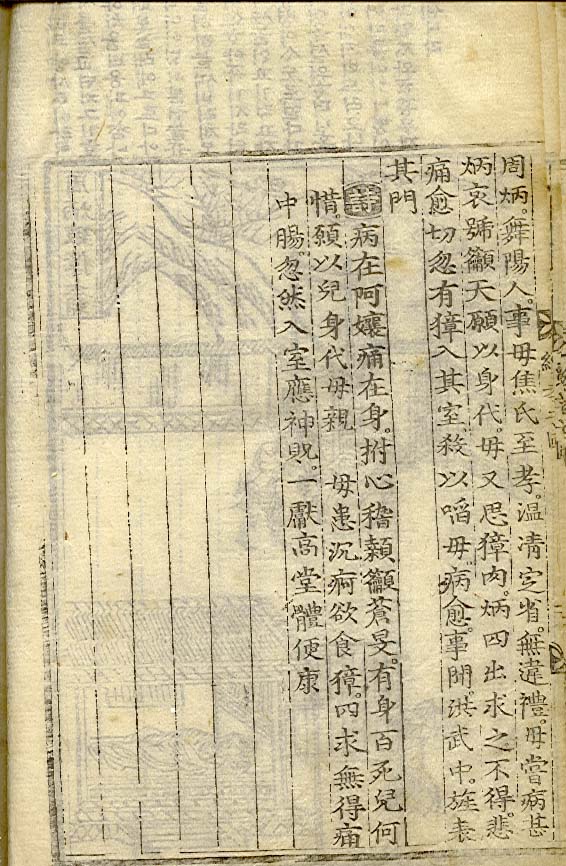 周炳。舞陽人。事母焦氏至孝。溫凊定省。無違禮。母嘗病甚
炳哀號籲天願以身代。母又思獐肉。炳四出求之不得。悲
痛愈切忽有獐入其室。殺以啗母。病愈。事聞。洪武中。旌表
其門
詩 病在阿孃痛在身。拊心稽顙籲蒼旻。有身百死兒何
惜。願以兒身代母親 母患沉痾欲食獐。四求無得痛
中腸。忽然入室應神貺。一獻高堂體便康